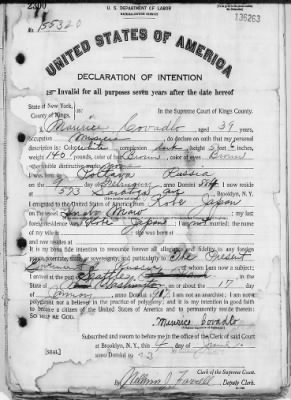 U. S. DEPARTMENT OF LABOR
NATURALIZATION SERVICE
136263
No. 155320
UNITED STATES OF AMERICA
DECLARATION OF INTENTION
Invalid for all purposes seven years after the date hereof
State of New York,
County of Kings,
ss:
In the Supreme Court of Kings County.
I, Maurice Covadlo, aged 39 years,
occupation, do declare on oath that my personal
description is: Color White, complexion, height 5 feet 6 inches,
weight 140 pounds, color of hair Brown, color of eyes Brown
other visible distinctive marks
I was born in Poltava Russia
on the day of, anno Domini; I now reside
at 573 Saratoga Ave, Brooklyn, N.Y.
I emigrated to the United States of America from Kobe Japan
on the vessel Maru; my last
foreign residence was Kobe Japan; I am married; the name
of my wife is; she was born at
and now resides at
It is my bona fide intention to renounce forever all allegiance and fidelity to any foreign
prince, potentate, state, or sovereignty, and particularly to The Present
Government of Russia, of whom I am now a subject;
I arrived at the port of Seattle, in the
State of Washington, on or about the 17 day
of, anno Domini; I am not an anarchist; I am not a
polygamist nor a believer in the practice of polygamy; and it is my intention in good faith
to become a citizen of the United States of America and to permanently reside therein:
SO HELP ME GOD.
Maurice Covadlo
Subscribed and sworn to before me in the office of the Clerk of said Court
at Brooklyn, N. Y., this day of
anno Domini
[SEAL]
Clerk of the Supreme Court.
By William J. Farrell, Deputy Clerk.